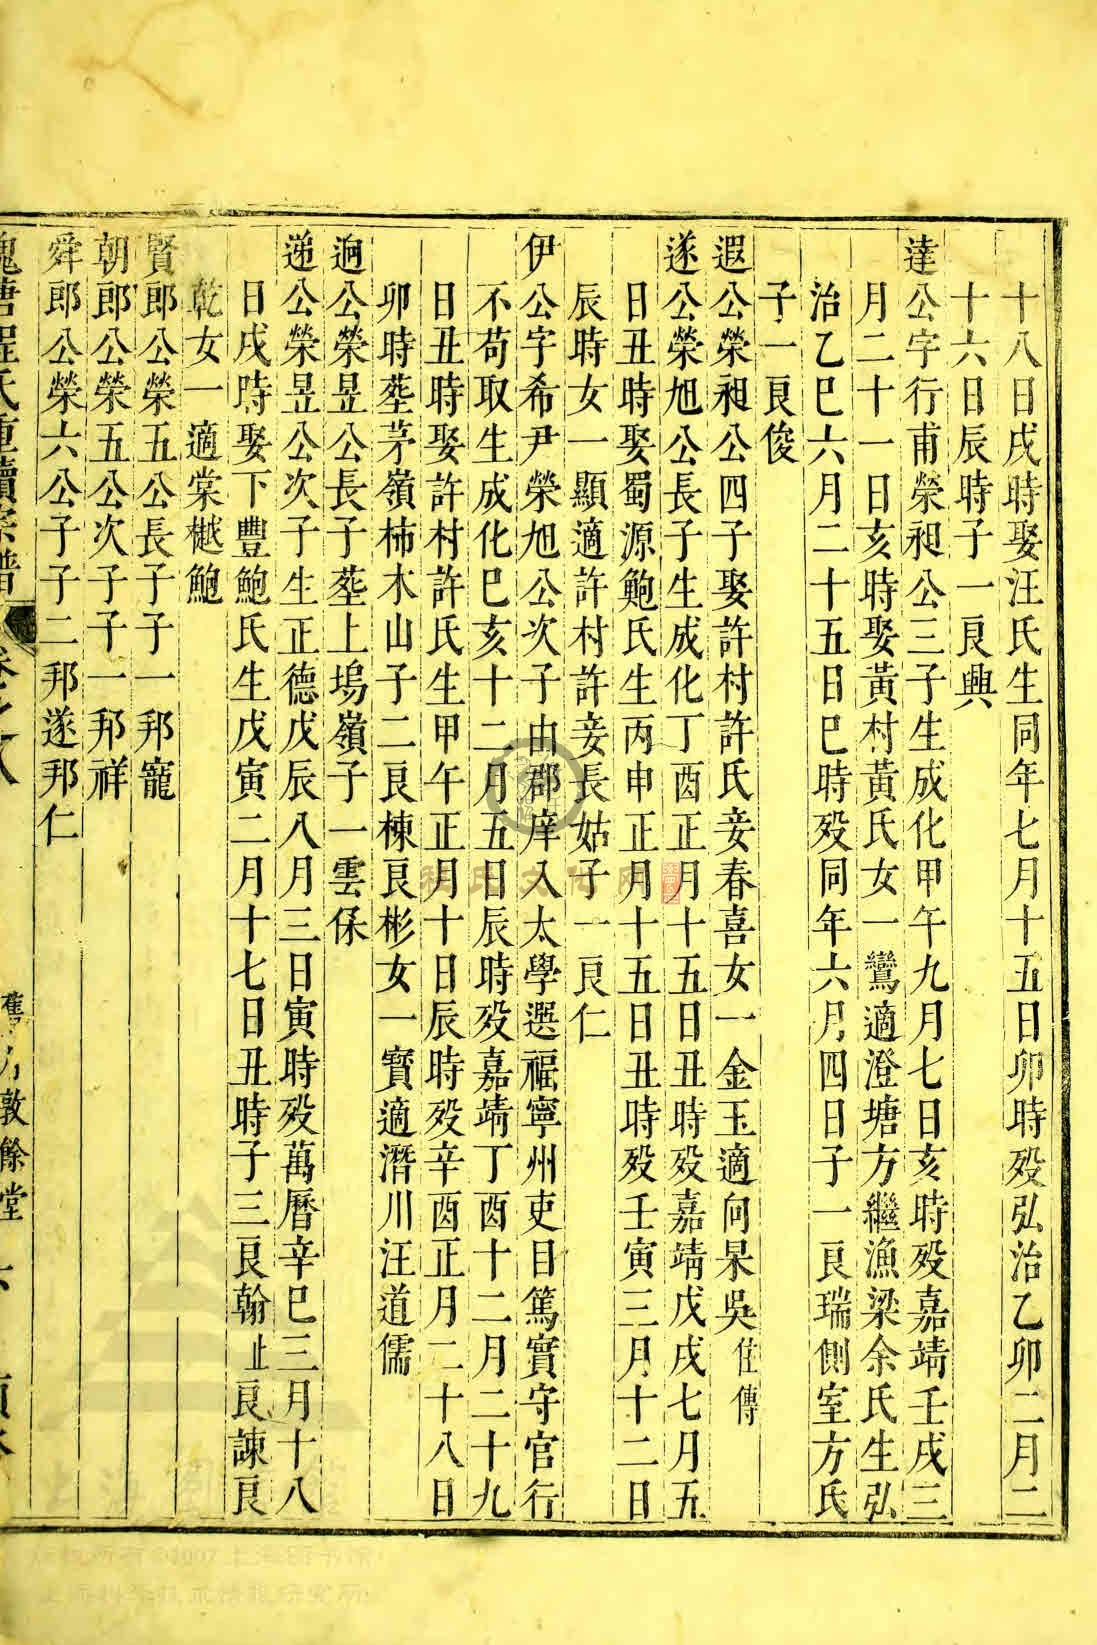 十八日戌時娶汪氏生同年七月十五日卯時歿弘治乙卯二月二
十六日辰時子一良興
達公字行甫榮昶公三子生成化甲午九月七日亥時歿嘉靖壬戌三
月二十一日亥時娶黃村黃氏女一鸞適澄塘方繼漁梁余氏生弘
治乙巳六月二十五日巳時歿同年六月四日子一良瑞側室方氏
子一良俊
遐公榮昶公四子娶許村許氏妾春喜女一金玉適向杲吳佳傳
遂公榮旭公長子生成化丁酉正月十五日丑時歿嘉靖戊戌七月五
日丑時娶蜀源鮑氏生丙申正月十五日丑時歿壬寅三月十二日
辰時女一顯適許村許妾長姑子一良仁
伊公字希尹榮旭公次子由郡庠入太學選福寧州吏目篤實守官行
不苟取生成化巳亥十二月五日辰時歿嘉靖丁酉十二月二十九
日丑時娶許村許氏生甲午正月十日辰時歿辛酉正月二十八日
卯時塟茅嶺柿木山子二良棟良彬女一寳適潛川汪道儒
逈公榮昱公長子塟上塢嶺子一雲保
逓公榮昱公次子生正德戊辰八月三日寅時歿萬曆辛巳三月十八
日戌時娶下豐鮑氏生戊寅二月十七日丑時子三良翰止良諫良
乾女一適棠樾鮑
賢郎公榮五公長子子一邦寵
朝郎公榮五公次子子一邦祥
舜郎公榮六公子子二邦遂邦仁
槐塘程氏重續宗譜 卷之八
敦餘堂
上海圖
版权所有©2007上海图书馆
上海科学技术情报研究所
程氏文化网